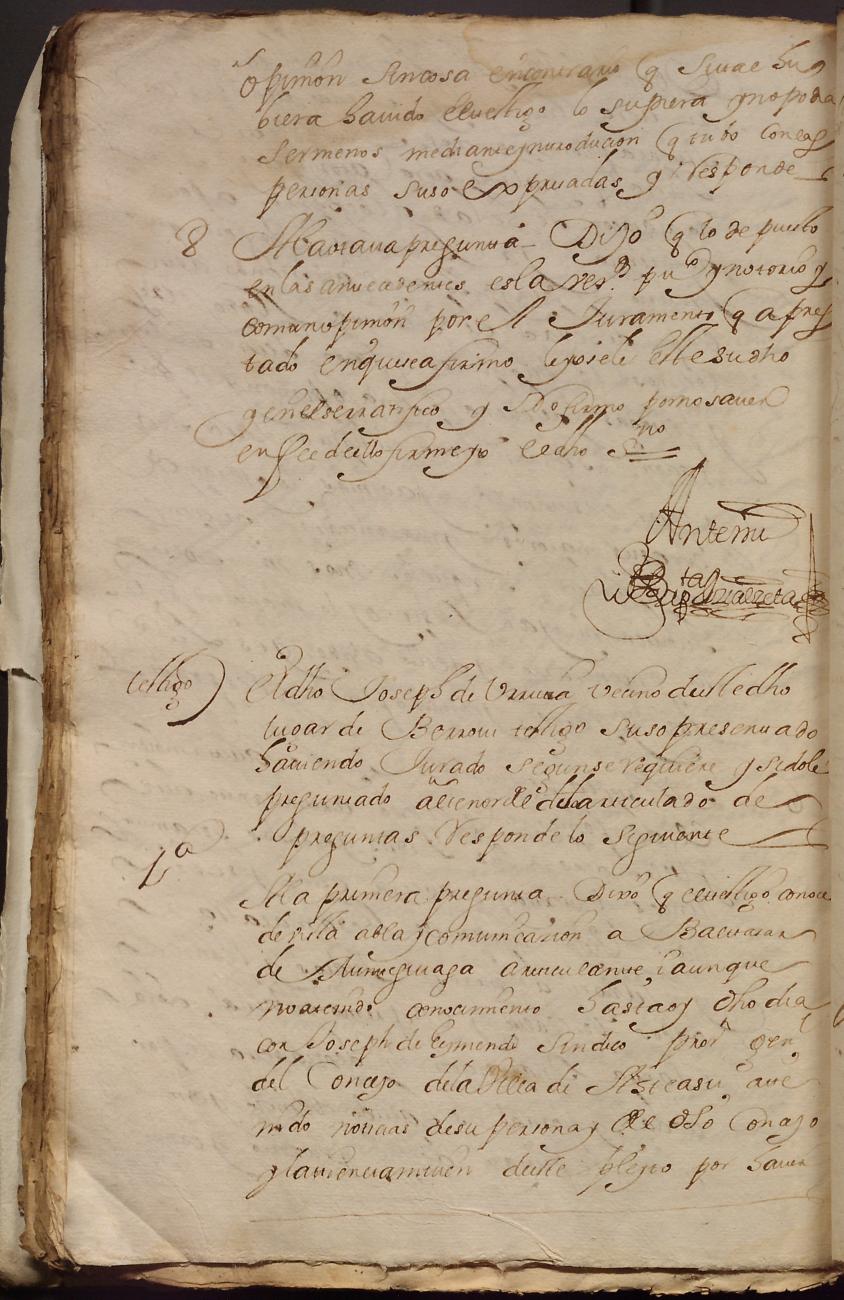 opinion sin cosa en contrario q si la hu
biera havido el testigo lo supiera y no podia
ser menos mediante yntroducion q tubo con las
personas suso expresadas y responde
8 A la octava pregunta Dijo q lo depuesto
en las antecedentes es la verd pu^co y notorio y
comun opinion por el Juramento q a pres
tado en que se afirmo leyosele este su dho
y en el se rratifico y no firmo por no saver
en fee de ello firme yo el dho S^no
Antemi
testigo El dho Joseph de Urrutia vecino de este dho
lugar de Berrovi testigo suso presentado
haviendo Jurado segun se requiere y sidole
preguntado al tenor de el articulado de
preguntas Responde lo siguiente
1^a A la primera pregunta Dixo q el testigo conoce
de vista abla y comunicacion a Baltasar
de articulante, i aunque
no a tenido conocimiento hasta oy dho dia
con Joseph de Eyzmendi Sindico pror gen^l
del Concejo de la Villa de Asteasu, a te
nido noticias de su persona y
y la tiene tambien de este pleyto por haver